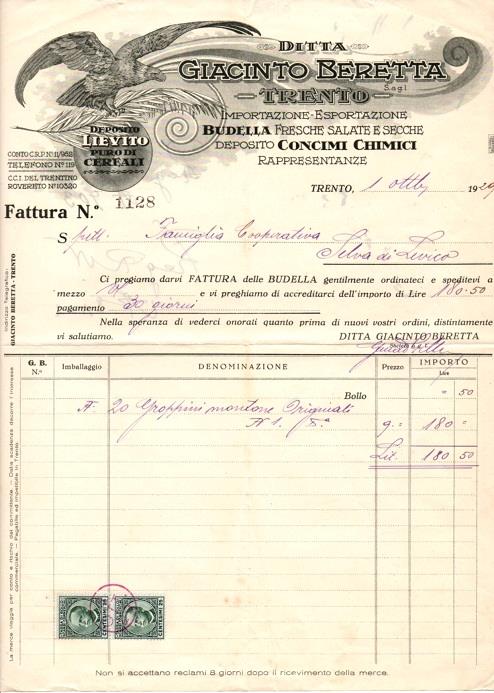 DITTA
GIACINTO BERETTA
S.a.g.l.
TRENTO
IMPORTAZIONE-ESPORTAZIONE
BUDELLA FRESCHE SALATE E SECCHE
DEPOSITO CONCIMI CHIMICI
RAPPRESENTANZE
DEPOSITO
LIEVITO
PURO DI
CEREALI
CONTO C.R.P. N° 11/952
TELEFONO N° 119
C.C.I. DEL TRENTINO
ROVERETO N° 10320
TRENTO, 1 ottbr 1929
Fattura N.° 1128
Spitt. Famiglia Cooperativa
Selva di Levico
Ci pregiamo darvi FATTURA delle BUDELLA gentilmente ordinateci e speditevi a
mezzo e vi preghiamo di accreditarci dell'importo di Lire 180.50
pagamento 30 giorni
Nella speranza di vederci onorati quanto prima di nuovi vostri ordini, distintamente
vi salutiamo. DITTA GIACINTO BERETTA
Indirizzo Telegrafico:
GIACINTO BERETTA - TRENTO
G. B. N.° Imballaggio DENOMINAZIONE Prezzo IMPORTO
Lire
Bollo " 50
20 Groppini montone Originali
N 1. 9.= 180 =
Lit. 180 50
CENTESIMI 25 CENTESIMI 25
La merce viaggia per conto e rischio del committente. — Dalla scadenza decorre l'interesse
commerciale. — Pagabile ed impettibile in Trento.
Non si accettano reclami 8 giorni dopo il ricevimento della merce.